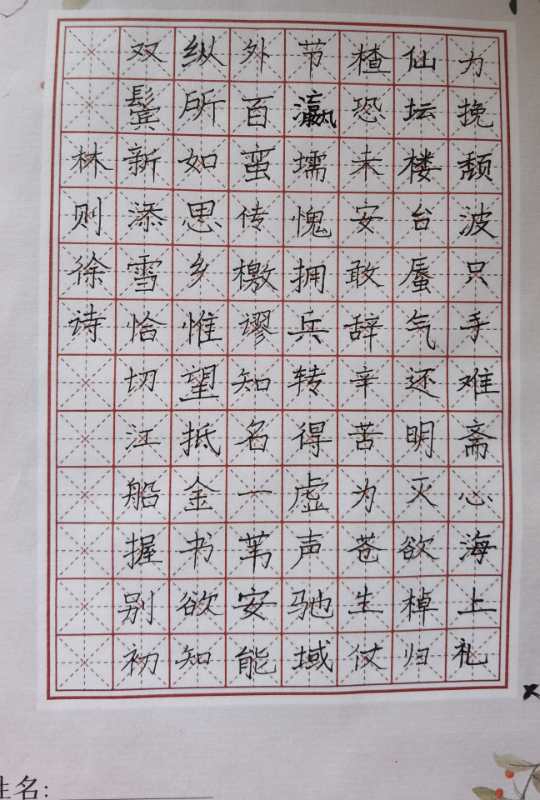 力挽颓波只手难斋心海上礼
仙坛楼台蜃气还明灭欲棹归
楂恐未安敢辞辛苦为苍生仗
节瀛壖愧拥兵转得虚声驰域
外百蛮传檄谬知名一苇安能
纵所如思乡惟望抵金书欲知
双鬓新添雪恰切江船握别初
林则徐诗
姓名: